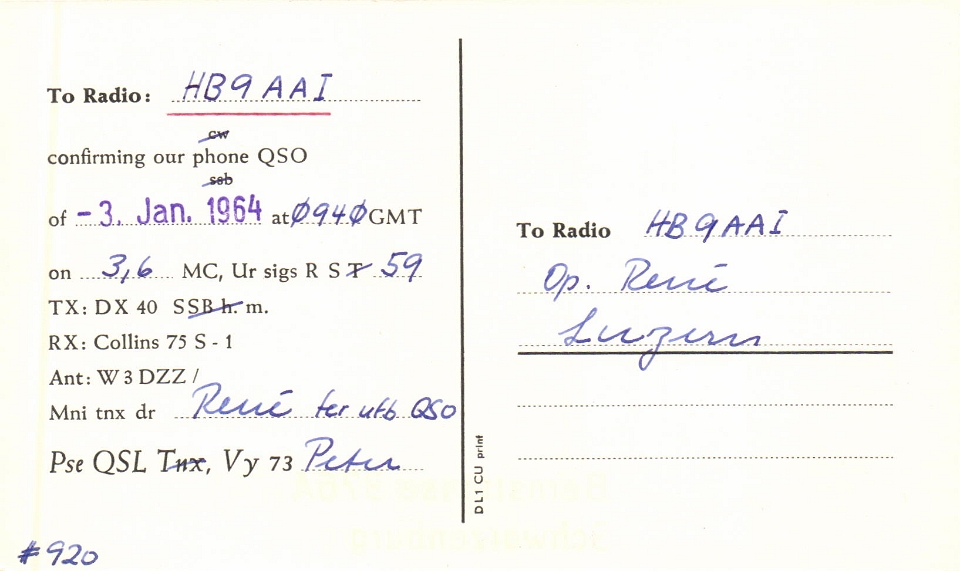 To Radio: HB9AAI
cw
confirming our phone QSO
ssb
of -3. Jan. 1964 at 0940 GMT
on 3,6 MC, Ur sigs R S T 59
TX: DX 40 SSB h. m.
RX: Collins 75 S - 1
Ant: W 3 DZZ /
Mni tnx dr René fer ufb QSO
Pse QSL Tnx, Vy 73 Peter
#920
To Radio HB9AAI
Op. René
Luzern
DL1 CU print